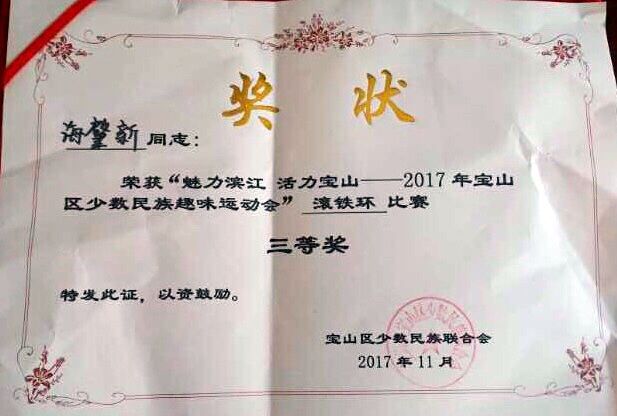 奖状
海肇新 同志：
荣获“魅力滨江 活力宝山——2017年宝山
区少数民族趣味运动会” 滚铁环 比赛
三等奖
特发此证，以资鼓励。
宝山区少数民族联合会
2017年11月